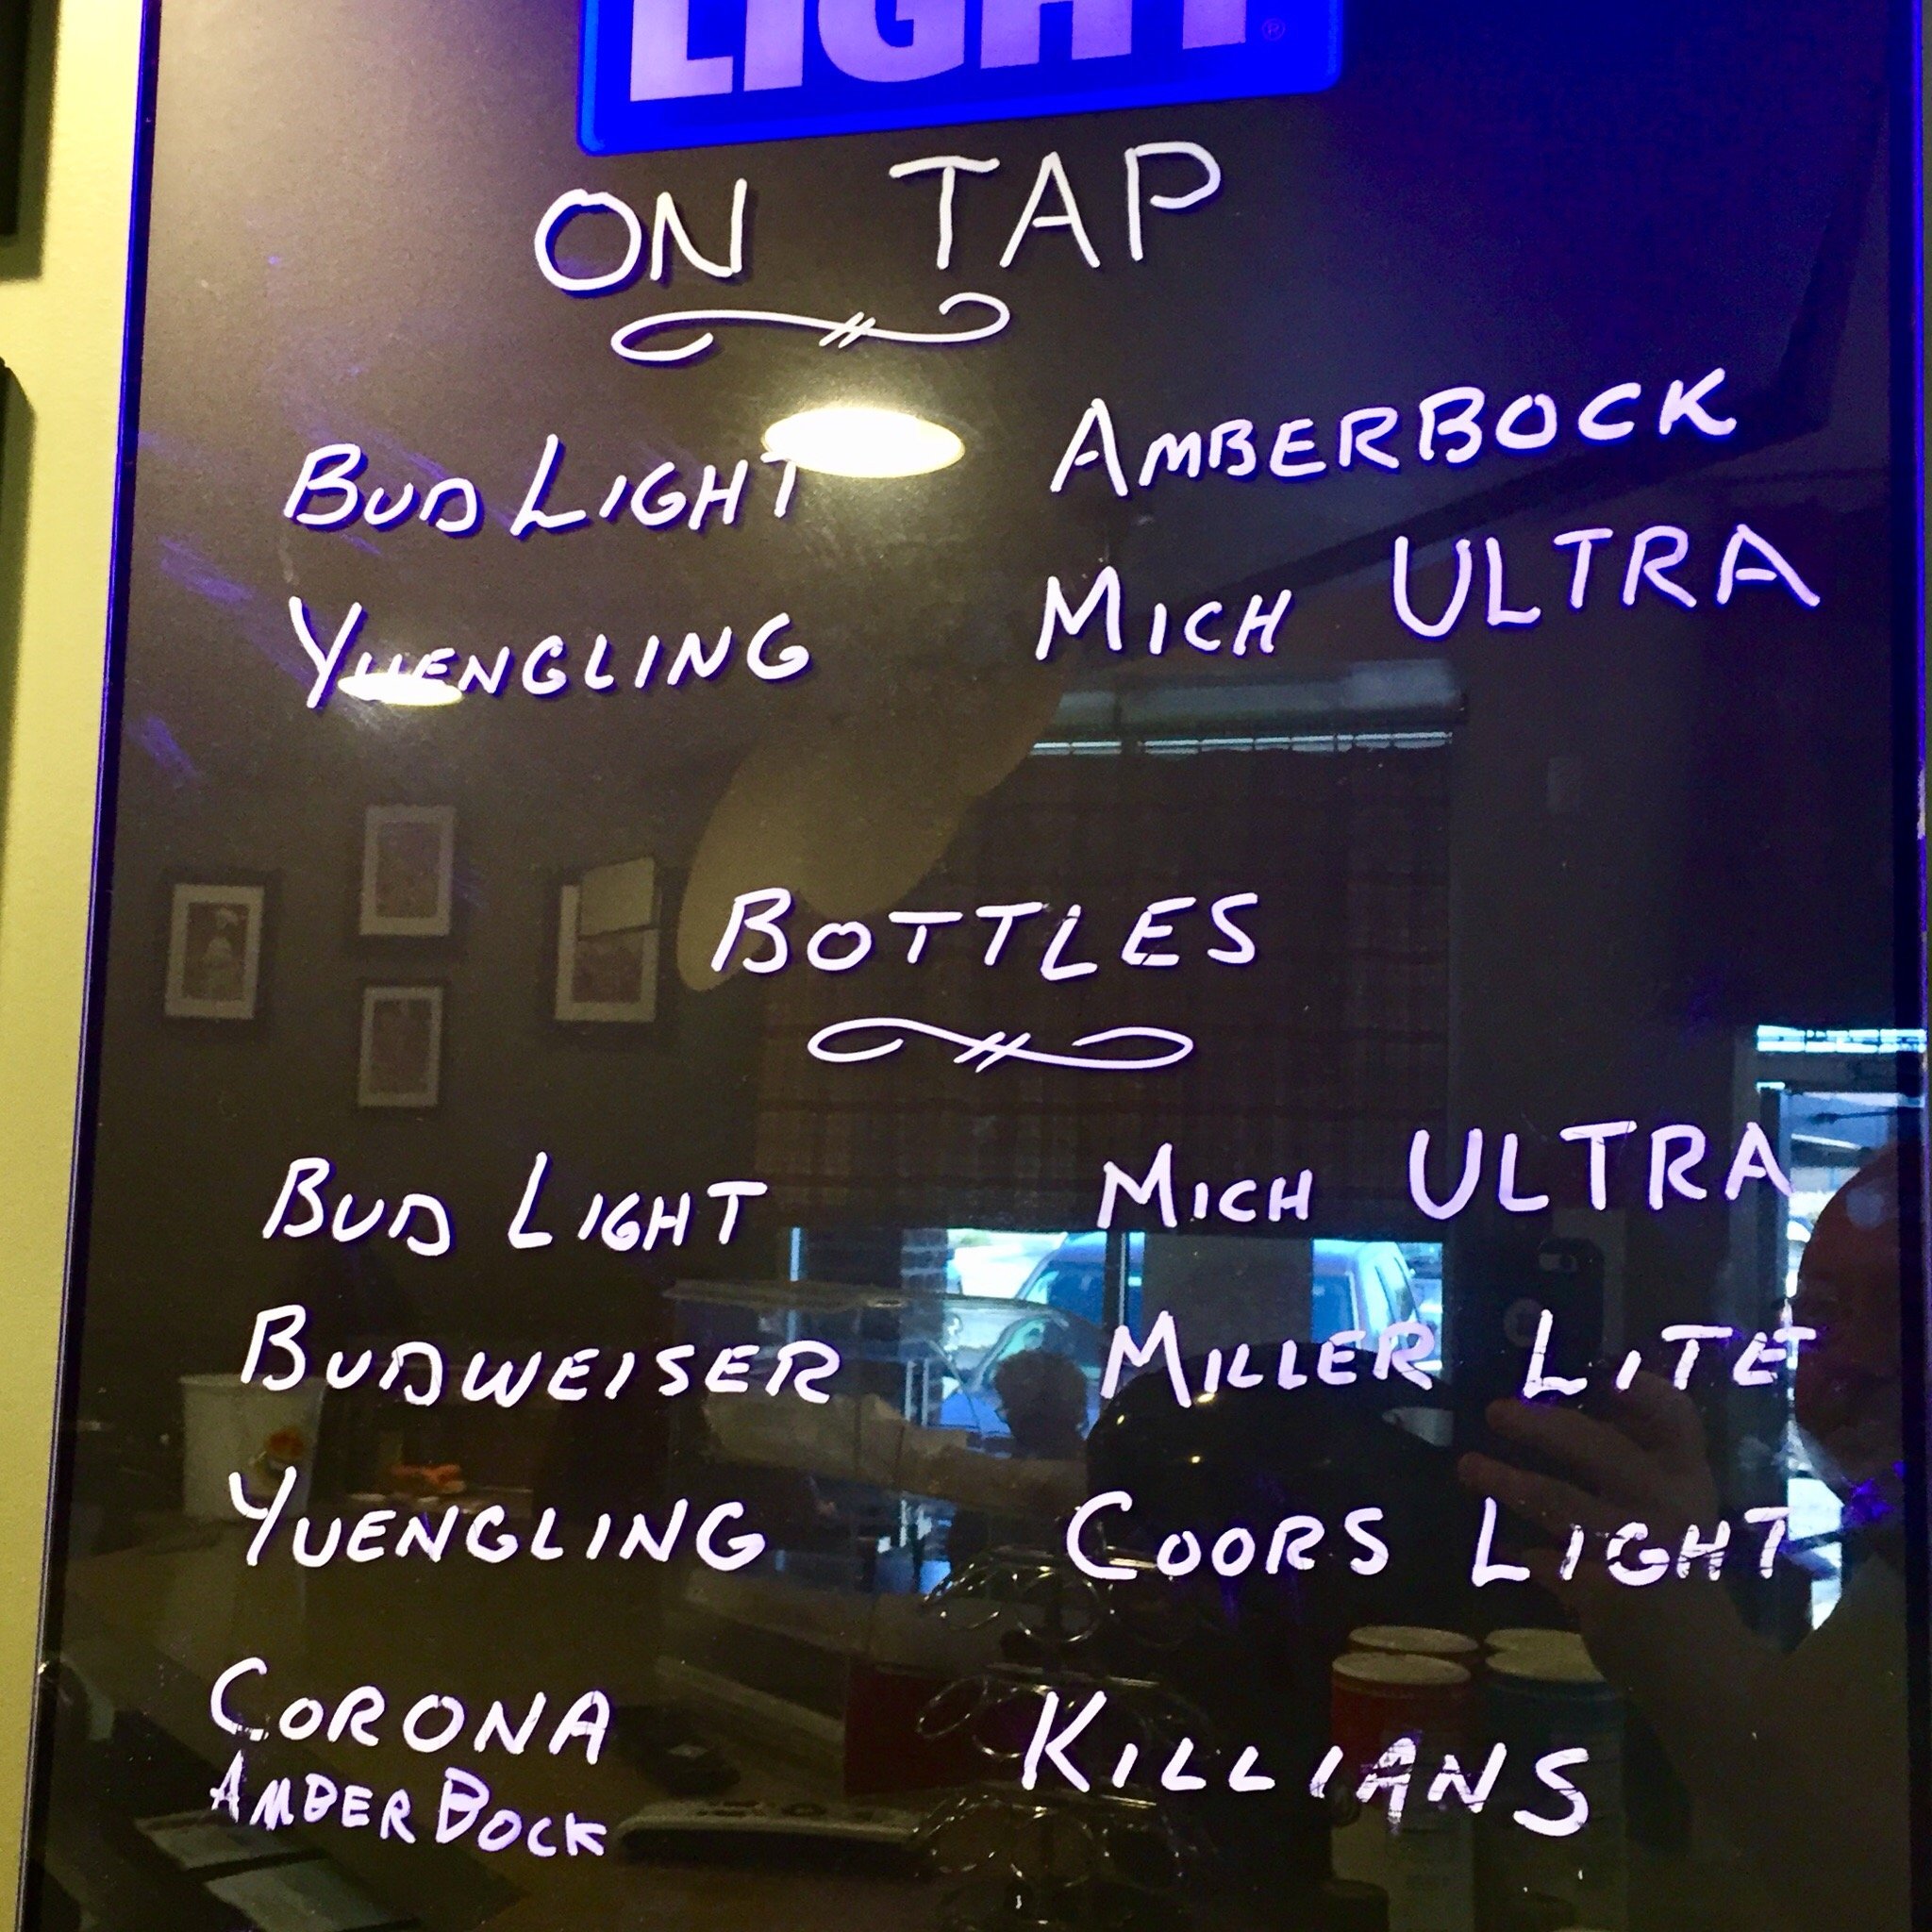 LIGHT
ON TAP
BUD LIGHT AMBERBOCK
YUENGLING MICH ULTRA
BOTTLES
BUD LIGHT MICH ULTRA
BUDWEISER MILLER LITE
YUENGLING COORS LIGHT
CORONA KILLIANS
AMBERBOCK